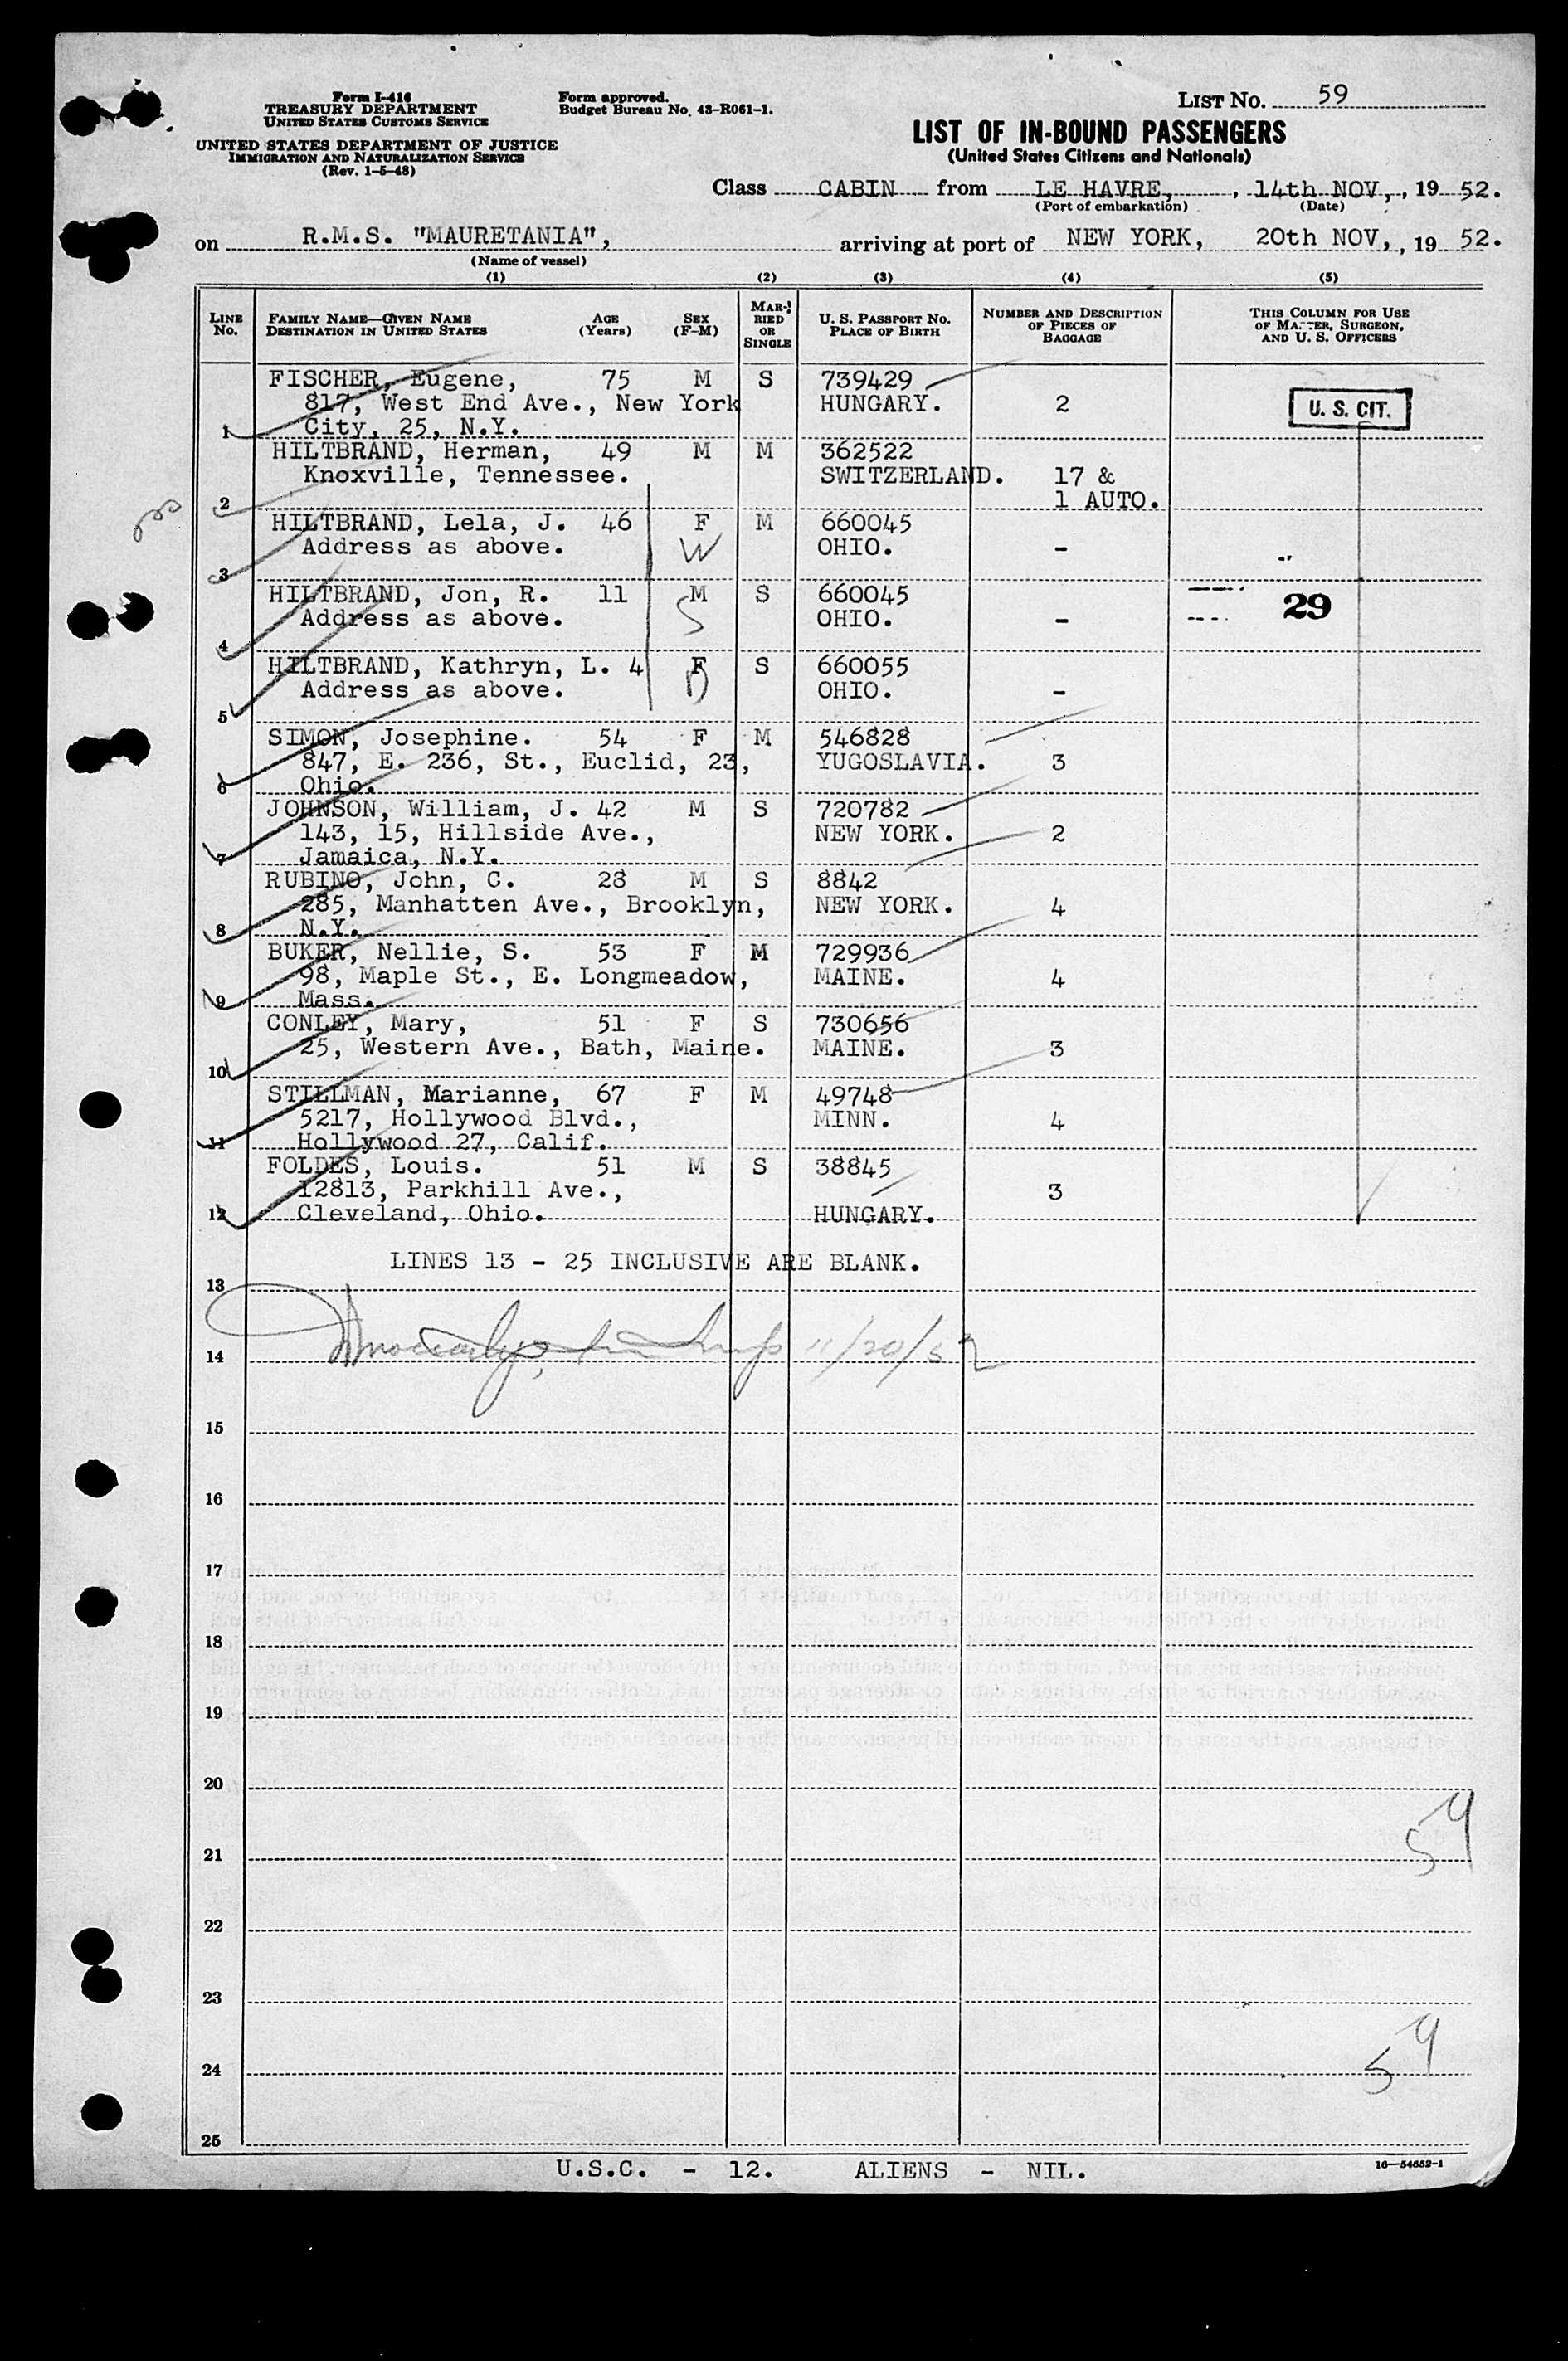 Form I-416
TREASURY DEPARTMENT
UNITED STATES CUSTOMS SERVICE
UNITED STATES DEPARTMENT OF JUSTICE
IMMIGRATION AND NATURALIZATION SERVICE
(Rev. 1-5-48)
Form approved.
Budget Bureau No. 43-R061-1.
LIST NO. 59
LIST OF IN-BOUND PASSENGERS
(United States Citizens and Nationals)
Class CABIN from LE HAVRE, , 14th NOV, , 19 52.
(Port of embarkation) (Date)
on R.M.S. "MAURETANIA", arriving at port of NEW YORK, 20th NOV, , 19 52.
(Name of vessel)
(1) (2) (3) (4) (5)
LINE No. FAMILY NAME—GIVEN NAME DESTINATION IN UNITED STATES AGE (Years) SEX (F-M) MARRIED OR SINGLE U. S. PASSPORT NO. PLACE OF BIRTH NUMBER AND DESCRIPTION OF PIECES OF BAGGAGE THIS COLUMN FOR USE OF MASTER, SURGEON, AND U. S. OFFICERS
FISCHER, Eugene, 75 M S 739429
817, West End Ave., New York HUNGARY. 2 U. S. CIT.
1 City, 25, N.Y.
HILTBRAND, Herman, 49 M M 362522
Knoxville, Tennessee. SWITZERLAND. 17 &
2 1 AUTO.
HILTBRAND, Lela, J. 46 F M 660045
Address as above. W OHIO. -
3
HILTBRAND, Jon, R. 11 M S 660045
Address as above. S OHIO. - 29
4
HILTBRAND, Kathryn, L. 4 F S 660055
Address as above. D OHIO. -
5
SIMON, Josephine. 54 F M 546828
847, E. 236, St., Euclid, 23, YUGOSLAVIA. 3
6 Ohio.
JOHNSON, William, J. 42 M S 720782
143, 15, Hillside Ave., NEW YORK. 2
7 Jamaica, N.Y.
RUBINO, John, C. 28 M S 8842
285, Manhatten Ave., Brooklyn, NEW YORK. 4
8 N.Y.
BUKER, Nellie, S. 53 F M 729936
98, Maple St., E. Longmeadow, MAINE. 4
9 Mass.
CONLEY, Mary, 51 F S 730656
25, Western Ave., Bath, Maine. MAINE. 3
10
STILLMAN, Marianne, 67 F M 49748
5217, Hollywood Blvd., MINN. 4
11 Hollywood 27, Calif.
FOLDES, Louis. 51 M S 38845
12813, Parkhill Ave., 3
12 Cleveland, Ohio. HUNGARY.
LINES 13 - 25 INCLUSIVE ARE BLANK.
13
14 11/20/52
15
16
17
18
19
20
21 59
22
23
24 59
25
U.S.C. - 12. ALIENS - NIL.
16—54652-1